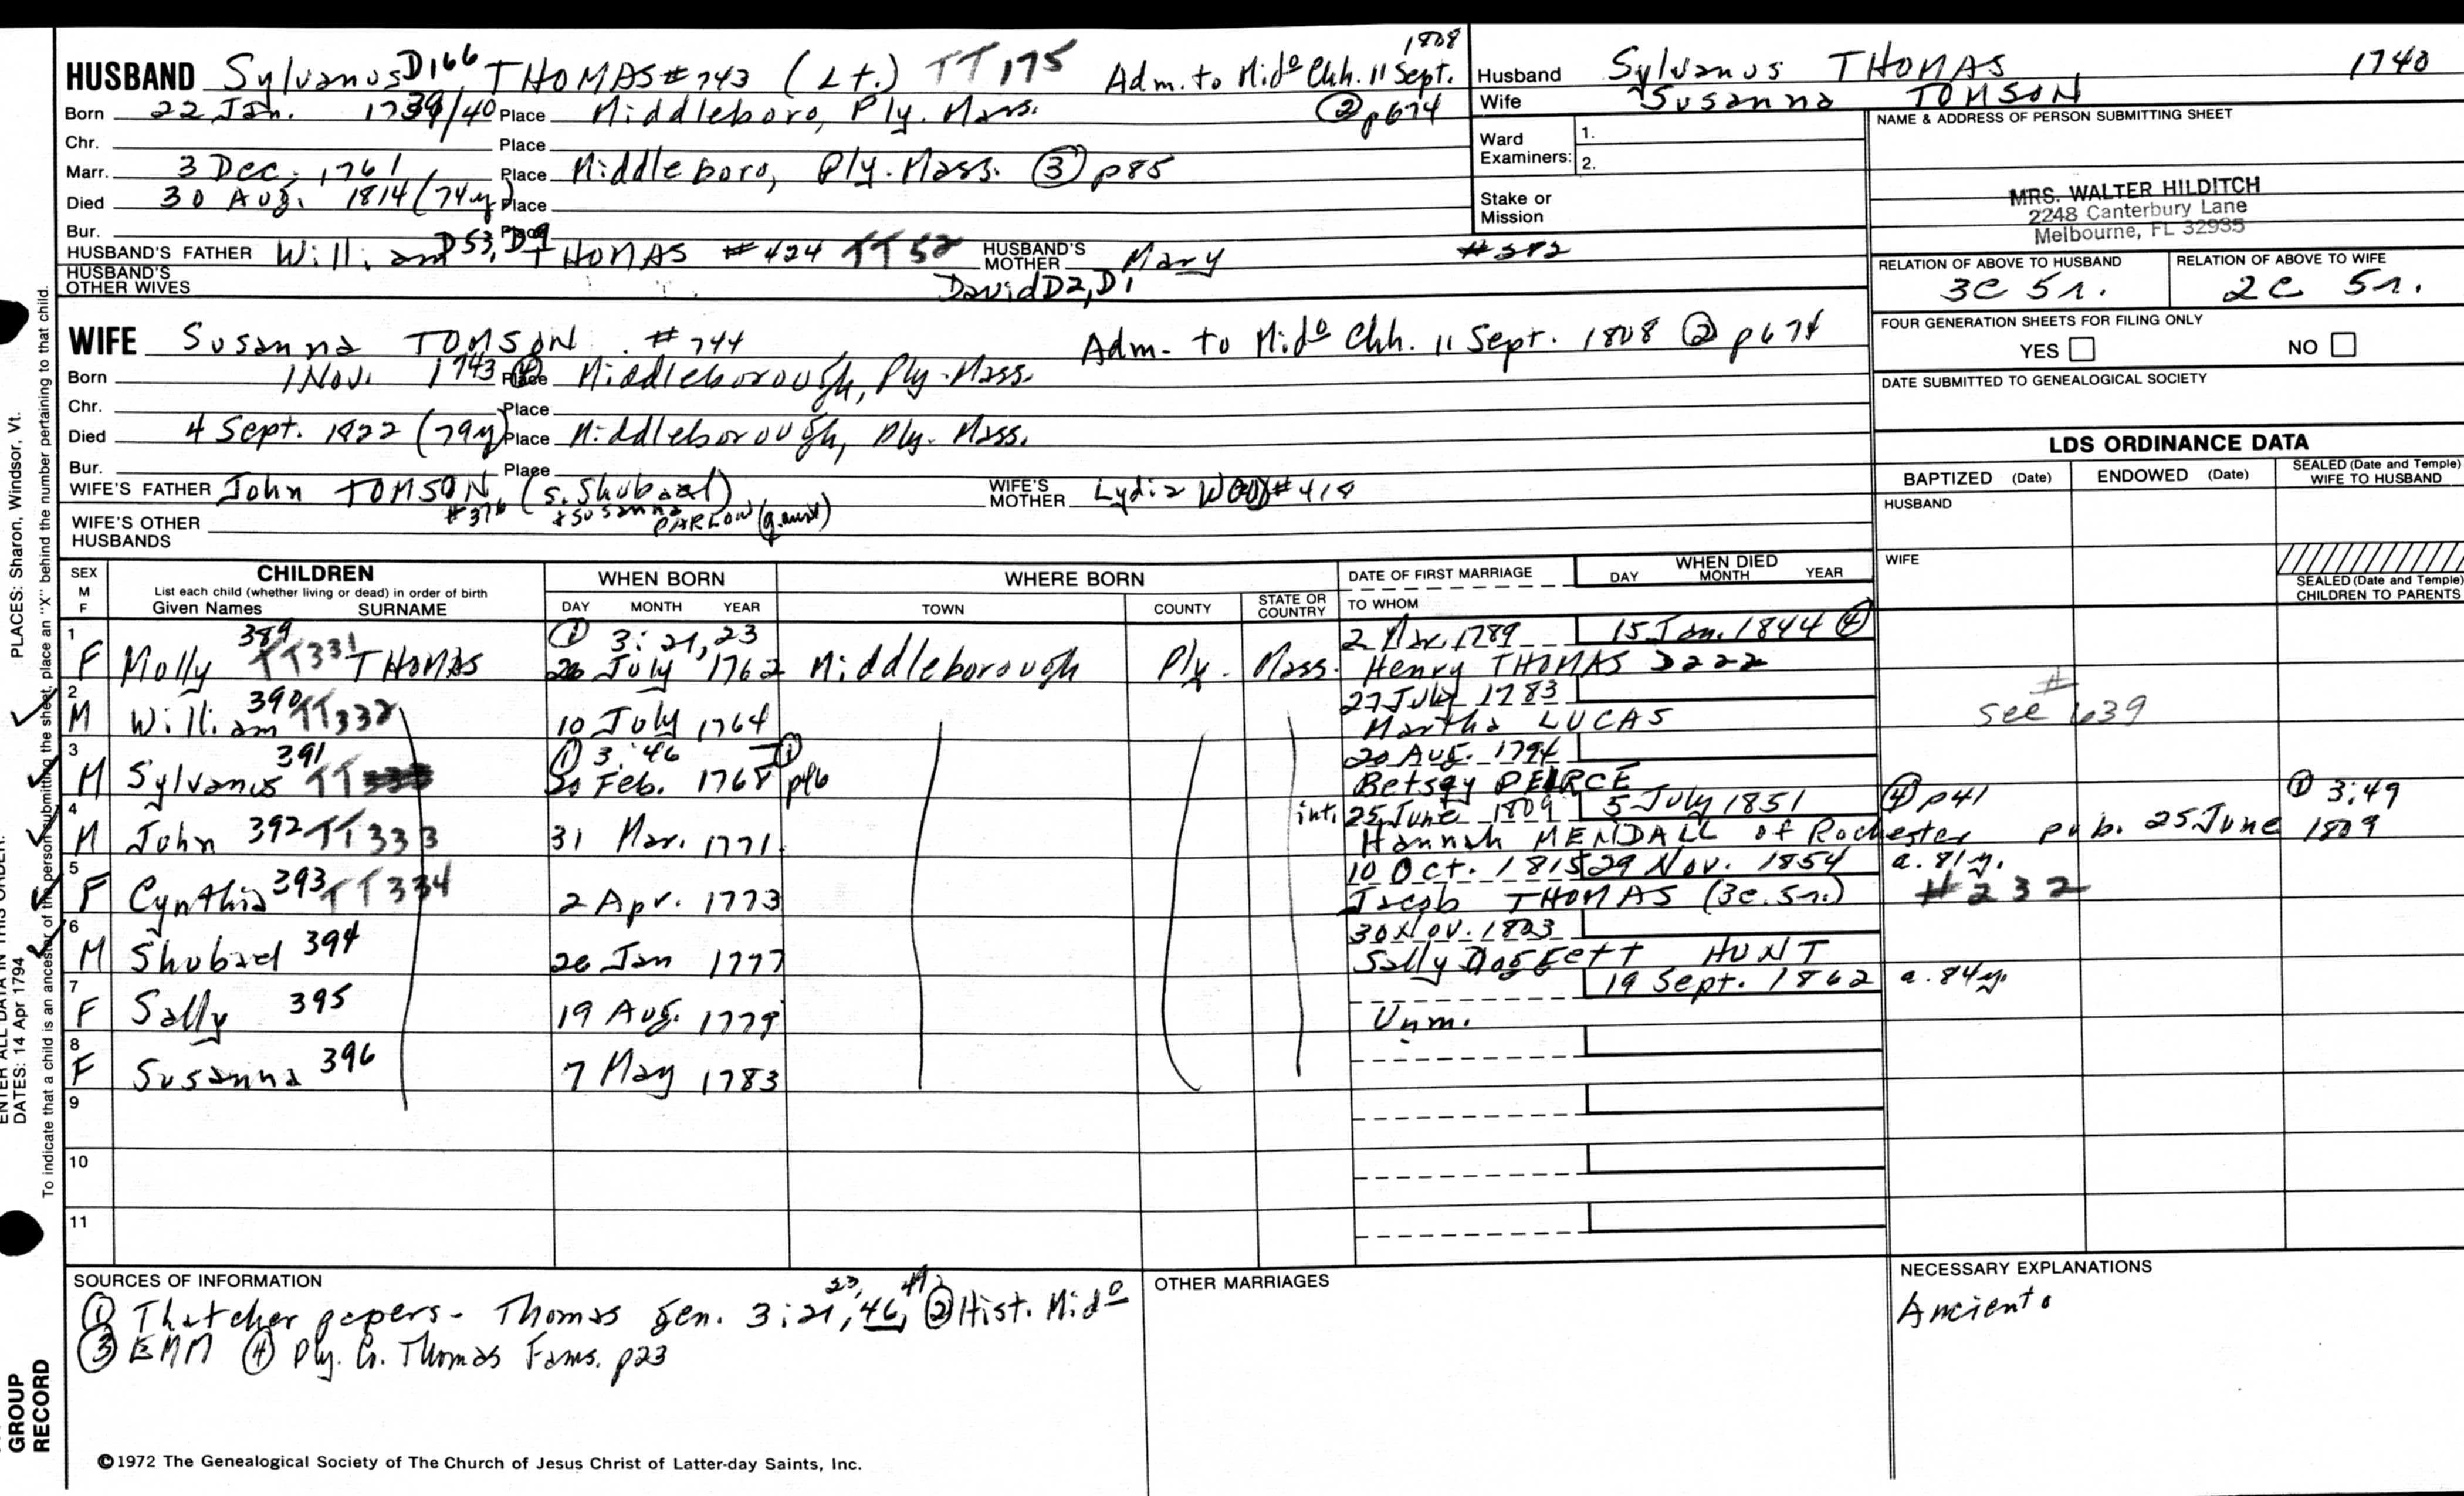 HUSBAND Sylvanus D166 THOMAS #743 (Lt.) TT 175 Adm. to Mido Chh. 11 Sept. 1808
Born 22 Jan. 1739/40 Place Middleboro, Ply. Mass. ② p674
Chr. Place
Marr. 3 Dec. 1761 Place Middleboro, Ply. Mass. ③ p85
Died 30 Aug. 1814 (74y) Place
Bur. Place
HUSBAND'S FATHER William D53, D9 THOMAS #424 TT 52 HUSBAND'S MOTHER Mary #382
HUSBAND'S OTHER WIVES David D2, D1
Husband Sylvanus THOMAS 1740
Wife Susanna TOMSON
Ward Examiners: 1.
2.
Stake or Mission
NAME & ADDRESS OF PERSON SUBMITTING SHEET
MRS. WALTER HILDITCH
2248 Canterbury Lane
Melbourne, FL 32935
RELATION OF ABOVE TO HUSBAND RELATION OF ABOVE TO WIFE
3c 5r. 2c 5r.
FOUR GENERATION SHEETS FOR FILING ONLY
YES NO
DATE SUBMITTED TO GENEALOGICAL SOCIETY
WIFE Susanna TOMSON #744 Adm. to Mido Chh. 11 Sept. 1808 ② p674
Born 1 Nov. 1743 Place Middleborough, Ply. Mass.
Chr. Place
Died 4 Sept. 1822 (79y) Place Middleborough, Ply. Mass.
Bur. Place
WIFE'S FATHER John TOMSON (s. Shubael WIFE'S MOTHER Lydia WOOD #418
#376 + Susanna PARLOW (q.
WIFE'S OTHER HUSBANDS
LDS ORDINANCE DATA
BAPTIZED (Date) ENDOWED (Date) SEALED (Date and Temple) WIFE TO HUSBAND
HUSBAND
WIFE
SEALED (Date and Temple) CHILDREN TO PARENTS
SEX M F CHILDREN WHEN BORN WHERE BORN DATE OF FIRST MARRIAGE WHEN DIED
List each child (whether living or dead) in order of birth DAY MONTH YEAR
Given Names SURNAME DAY MONTH YEAR TOWN COUNTY STATE OR COUNTRY TO WHOM
1 389 ① 3:21,23 2 Mar. 1789 15 Jan. 1844 ④
F Molly TT331 THOMAS 26 July 1762 Middleborough Ply. Mass. Henry THOMAS D222
2 390 27 July 1783
M William TT332 10 July 1764 Martha LUCAS see #639
3 391 ① 3:46 ① 20 Aug. 1794
M Sylvanus TT 20 Feb. 1768 p46 Betsey PEIRCE
4 int. 25 June 1809 5 July 1851 ④ p41 ① 3:49
M John 392 TT333 31 Mar. 1771 Hannah MENDALL of Rochester pub. 25 June 1809
5 10 Oct. 1815 29 Nov. 1854 a. 81y.
F Cynthia 393 TT334 2 Apr. 1773 Jacob THOMAS (3c. 5r.) #232
6 30 Nov. 1803
M Shubael 394 26 Jan 1777 Sally Daggett HUNT
7 19 Sept. 1862 a. 84y.
F Sally 395 19 Aug. 1779 Unm.
8
F Susanna 396 7 May 1783
9
10
11
SOURCES OF INFORMATION
① Thatcher papers - Thomas gen. 3:21, 23, 46, 49 ② Hist. Mido
③ EMM ④ Ply. Co. Thomas Fams. p23
OTHER MARRIAGES
NECESSARY EXPLANATIONS
©1972 The Genealogical Society of The Church of Jesus Christ of Latter-day Saints, Inc.
PLACES: Sharon, Windsor, Vt.
To indicate that a child is an ancestor of the person submitting the sheet, place an "X" behind the number pertaining to that child.
ENTER ALL DATA IN THIS ORDER:
DATES: 14 Apr 1794
GROUP
RECORD